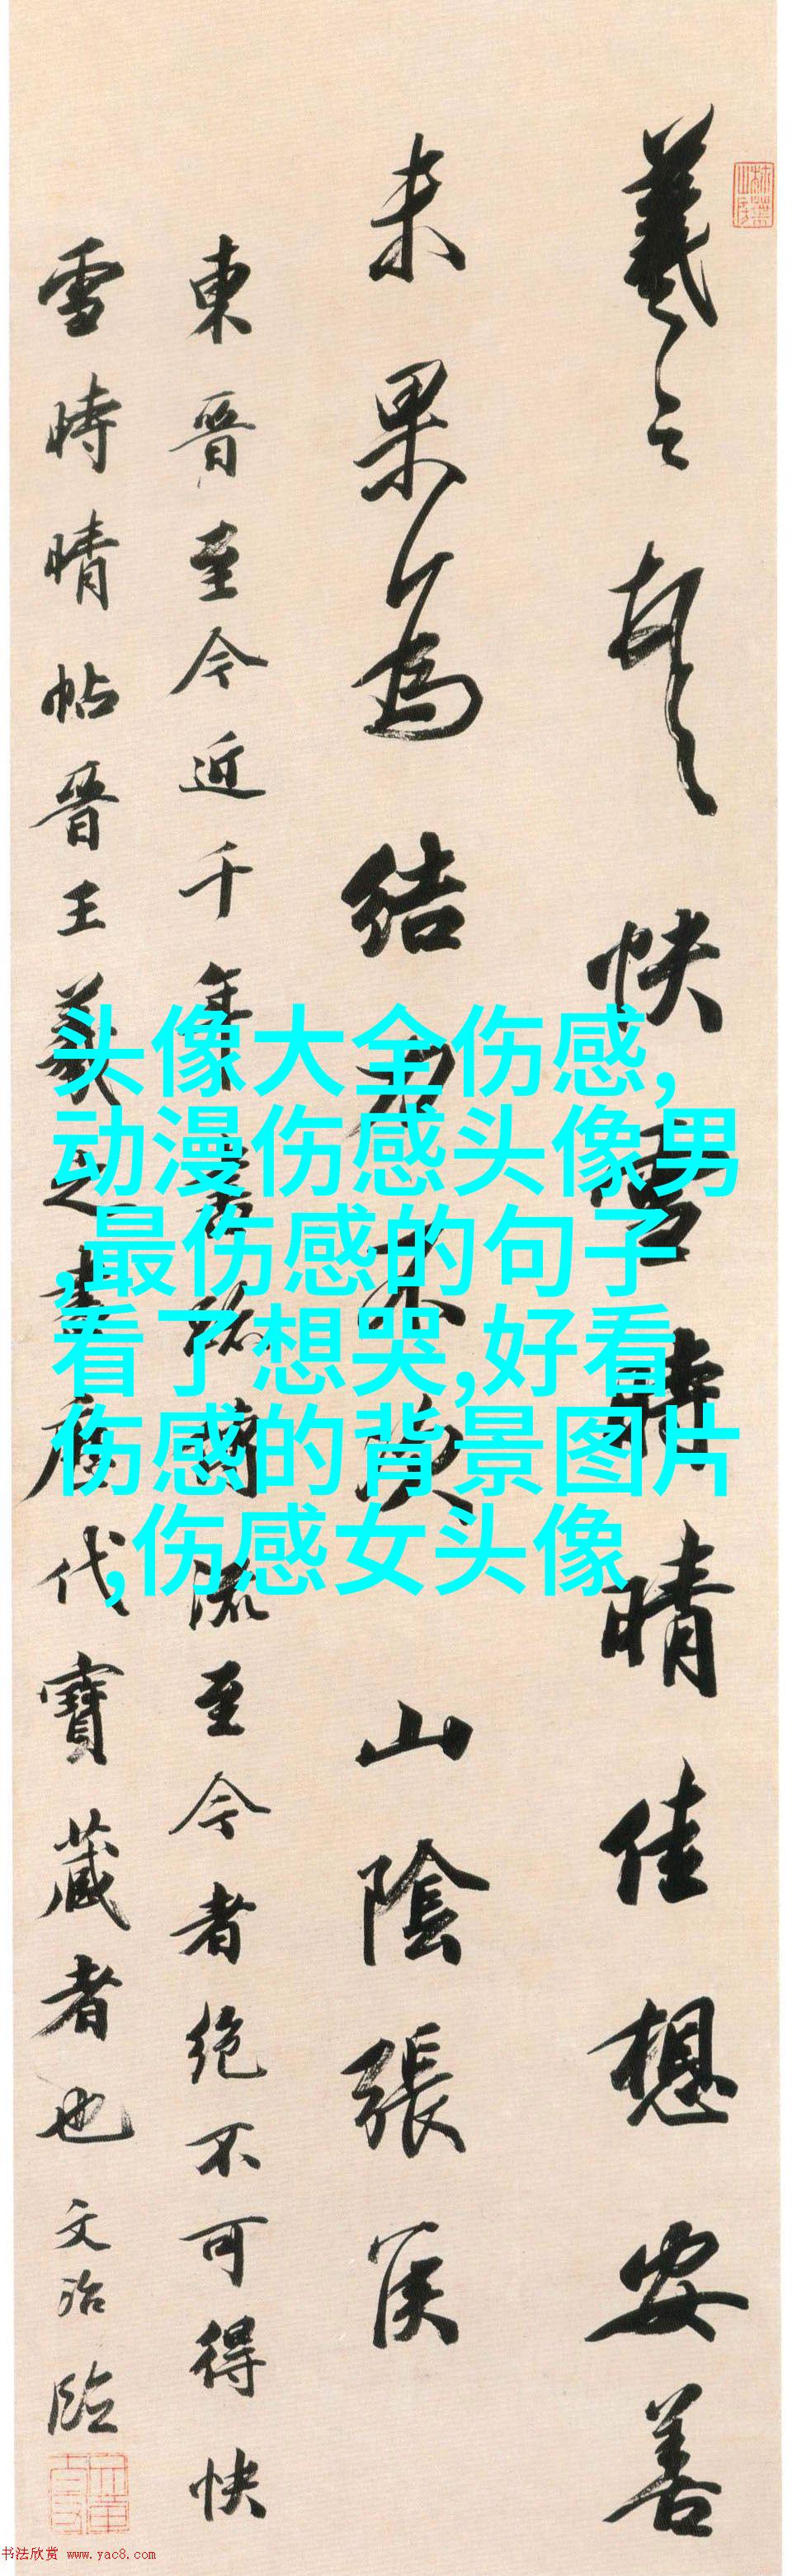 羲之頓首快雪時晴佳想安善
未果為結力不次山陰張侯
東晉至今近千年書跡傳流至今者绝不可得快
雪時晴帖晉王羲之書歷代寶藏者也文治臨
头像大全伤感,
动漫伤感头像男
,最伤感的句子
看了想哭,好看
伤感的背景图片
,伤感女头像
书法欣赏 www.yac8.com